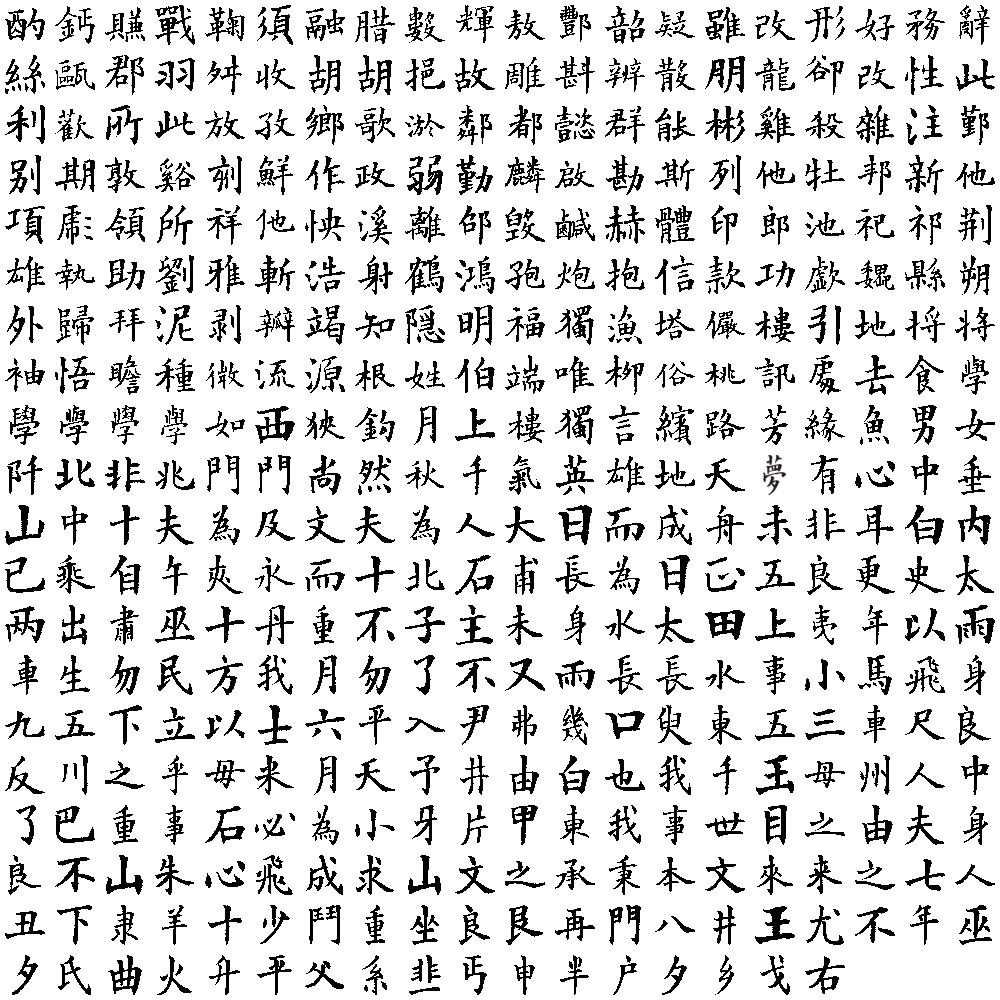 酌鈣賺戰鞠須融腊數輝敖酆韶疑雖改形好務辭
絲甌郡羽舛收胡胡挹故雕斟辨散朋龍卻改性此
利歡所此放孜鄉歌淤鄰都懿群能彬雞殺雜注鄞
别期敦谿刻鮮作政弱勤麟啟勘斯列他牡邦新他
項彪領所祥他怏溪離邵毀鹹赫體印郎池祀祁荆
雄執助劉雅斬浩射鶴鴻孢炮抱信款功歔魏縣朔
外歸拜泥剥瓣竭知隠明福獨漁塔儼樓引地将將
袖悟瞻種微流源根姓伯端唯柳俗桃訊處去食學
學學學學如西狹鈎月上樓獨言繽路芳緣魚男女
阡北非兆門門尚然秋千氣英雄地天夢有心中垂
山中十夫為及文夫為人大日而成舟未非耳白内
已乘自午爽永而十北石甫長為日正五良更史太
两出肅巫十丹重不子主未身水太田上夷年以雨
車生勿民方我月勿了不又雨長長水事小馬飛身
九五下立以士六平入尹弗幾口臾東五三車尺良
反川之乎毋米月天予井由白也我千王母州人中
了巴重事石必為小牙片甲東我事世目之由夫身
良不山朱心飛成求山文之承秉本文來来之七人
丑下隶羊十少鬥重坐良艮再門八井王尤不年巫
夕氏曲火升平父系韭丐申半户夕乡戈右